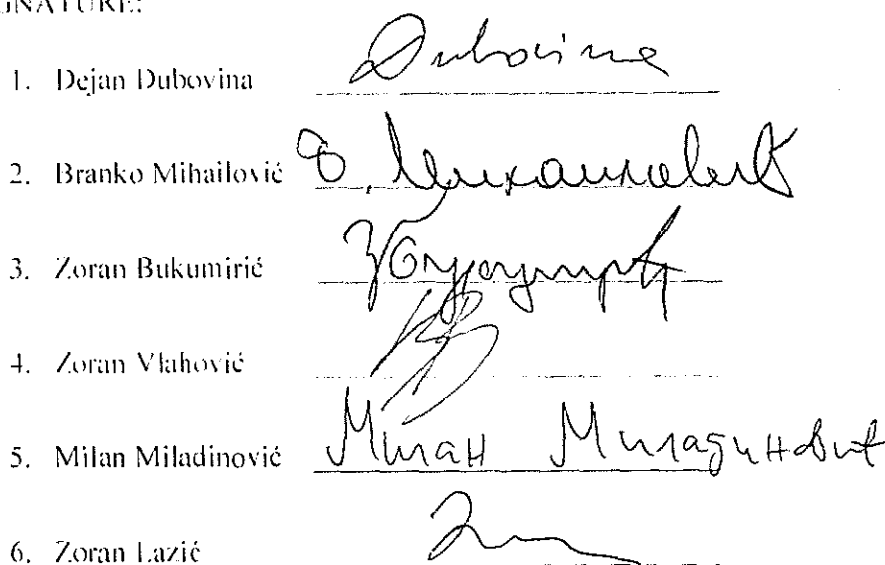 GNATURE:
1. Dejan Dubovina Dubovina
2. Branko Mihailović Б. Михаиловић
3. Zoran Bukumirić
4. Zoran Vlahović
5. Milan Miladinović Милан Миладиновић
6. Zoran Lazić